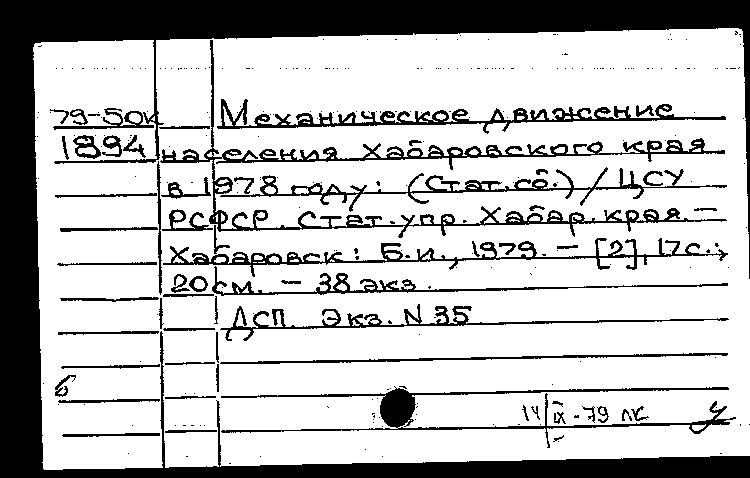 79-50к Механическое движение
1894 населения Хабаровского края
в 1978 году: (Стат. сб.) / ЦСУ
РСФСР. Стат. упр. Хабар. края. —
Хабаровск: Б.и., 1979. — [2], 17 с.;
20 см. — 38 экз.
ДСП. Экз. N 35
б
14/IX-79 лк